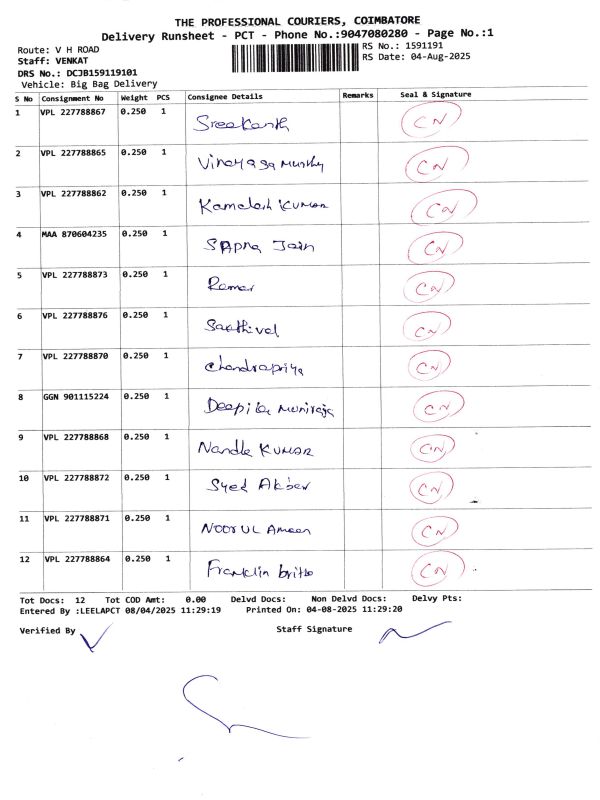 THE PROFESSIONAL COURIERS, COIMBATORE
Delivery Runsheet - PCT - Phone No.:9047080280 - Page No.:1
Route: V H ROAD RS No.: 1591191
Staff: VENKAT RS Date: 04-Aug-2025
DRS No.: DCJB159119101
Vehicle: Big Bag Delivery
S No Consignment No Weight PCS Consignee Details Remarks Seal & Signature
1 VPL 227788867 0.250 1 Sreekanth CN
2 VPL 227788865 0.250 1 Vinayaga Murthy CN
3 VPL 227788862 0.250 1 Kamalesh KUMAR CN
4 MAA 870604235 0.250 1 SAPna Jain CN
5 VPL 227788873 0.250 1 Ramar CN
6 VPL 227788876 0.250 1 Sakthivel CN
7 VPL 227788870 0.250 1 Chandrapriya CN
8 GGN 901115224 0.250 1 Deepika Muniraja CN
9 VPL 227788868 0.250 1 Nandha KUMAR CN
10 VPL 227788872 0.250 1 Syed Akber CN
11 VPL 227788871 0.250 1 NOORUL Ameen CN
12 VPL 227788864 0.250 1 Franklin britto CN
Tot Docs: 12 Tot COD Amt: 0.00 Delvd Docs: Non Delvd Docs: Delvy Pts:
Entered By :LEELAPCT 08/04/2025 11:29:19 Printed On: 04-08-2025 11:29:20
Verified By Staff Signature